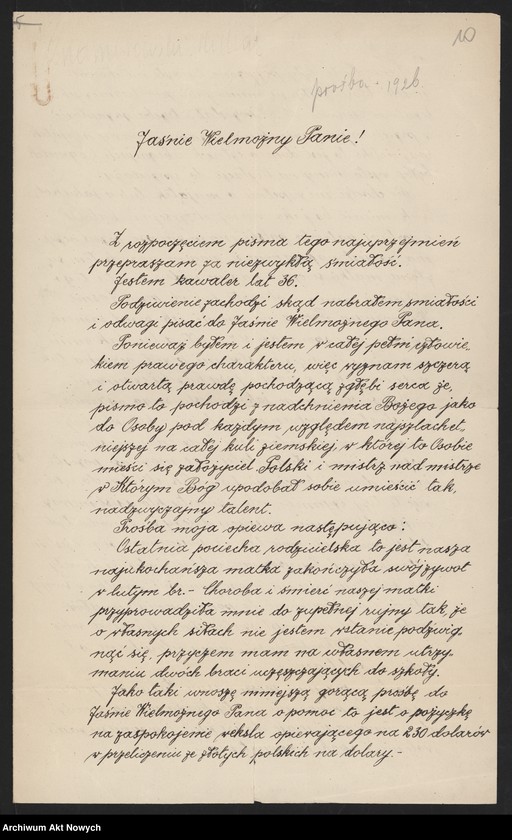 10
prośba. 1926
Jaśnie Wielmożny Panie!
Z rozpoczęciem pisma tego najuprzejmień
przepraszam za niezwykłą śmiałość.
Jestem kawaler lat 36.
Podziwienie zachodzi skąd nabrałem smiałości
i odwagi pisać do Jaśnie Wielmożnego Pana.
Ponieważ byłem i jestem w całej pełni człowie-
kiem prawego charakteru, więc wyznam szczerą
i otwartą prawdę pochodzącą z głębi serca że,
pismo to pochodzi z nadchnienia Bożego jako
do Osoby pod każdym względem najszlachet.
niejszej na całej kuli ziemskiej w której to Osobie
mieści się założyciel Polski i mistrz nad mistrze
w Którym Bóg upodobał sobie umieścić tak,
nadzwyczajny talent.
Prośba moja opiewa następująco:
Ostatnia pociecha rodzicielska to jest nasza
najukochańsza matka zakończyła swój żywot
w lutym br.- Choroba i śmierć naszej matki
przyprowadziła mnie do zupełnej rujny tak, że
o własnych siłach nie jestem wstanie podźwig
nąć się, przyczem mam na własnem utrzy.
maniu dwóch braci uczęszczających do szkoły.
Jako taki wnoszę niniejszą gorącą prośbę do
Jaśnie Wielmożnego Pana o pomoc to jest o pożyczkę
na zaspokojenie weksla opierającego na 230 dolarów
w przeliczeniu ze złotych polskich na dolary.-
Archiwum Akt Nowych